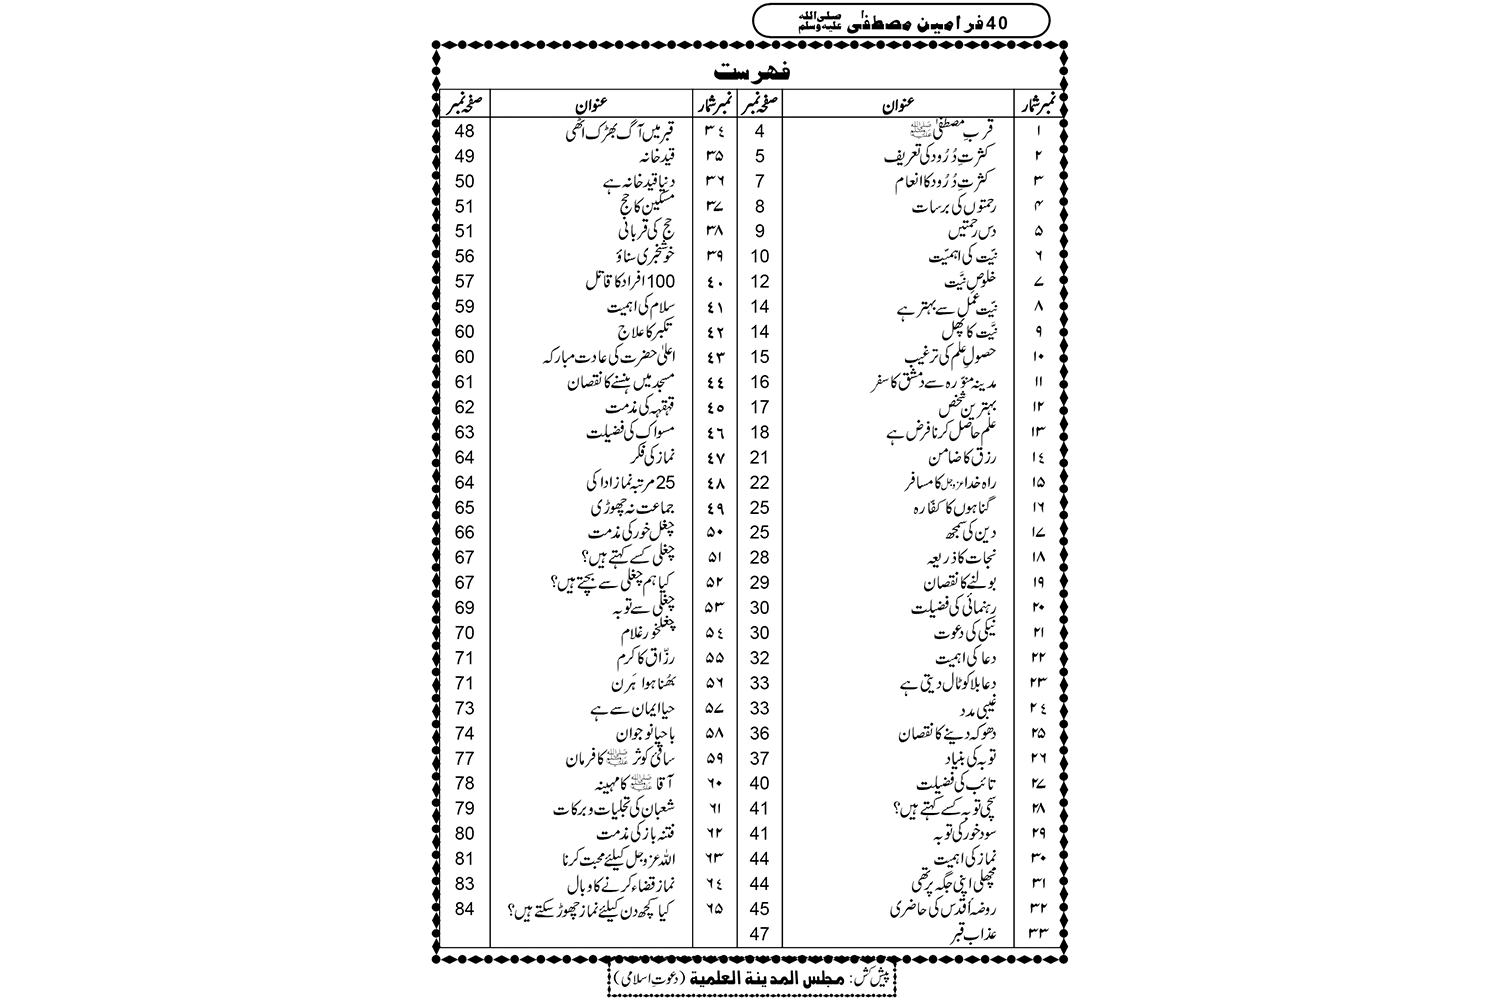 40 فرامین مصطفٰی صلی اللہ علیہ وسلم
فہرست
نمبرشمار عنوان صفحہ نمبر نمبرشمار عنوان صفحہ نمبر
۱ قربِ مصطفٰی ﷺ 4 ۳٤ قبر میں آگ بھڑک اٹھی 48
۲ کثرتِ دُرُود کی تعریف 5 ۳۵ قید خانہ 49
۳ کثرتِ دُرُود کا انعام 7 ۳٦ دنیا قید خانہ ہے 50
۴ رحمتوں کی برسات 8 ۳۷ مسکین کا حج 51
۵ دس رحمتیں 9 ۳۸ حج کی قربانی 51
٦ نیّت کی اہمیّت 10 ۳۹ خوشخبری سناؤ 56
۷ خلوصِ نیَّت 12 ٤۰ 100 افراد کا قاتل 57
۸ نیّت عمل سے بہتر ہے 14 ٤۱ سلام کی اہمیت 59
۹ نیَّت کا پھل 14 ٤۲ تکبر کا علاج 60
۱۰ حصولِ علم کی ترغیب 15 ٤۳ اعلیٰ حضرت کی عادت مبارکہ 60
۱۱ مدینہ منوّرہ سے دمشق کا سفر 16 ٤٤ مسجد میں ہنسنے کا نقصان 61
۱۲ بہترین شخص 17 ٤۵ قہقہہ کی مذمت 62
۱۳ علم حاصل کرنا فرض ہے 18 ٤٦ مسواک کی فضیلت 63
۱٤ رزق کا ضامن 21 ٤۷ نماز کی فکر 64
۱۵ راہ خدا عزوجل کا مسافر 22 ٤۸ 25 مرتبہ نماز ادا کی 64
۱٦ گناہوں کا کفّارہ 25 ٤۹ جماعت نہ چھوڑی 65
۱۷ دین کی سمجھ 25 ۵۰ چغل خور کی مذمت 66
۱۸ نجات کا ذریعہ 28 ۵۱ چغلی کسے کہتے ہیں؟ 67
۱۹ بولنے کا نقصان 29 ۵۲ کیا ہم چغلی سے بچتے ہیں؟ 67
۲۰ رہنمائی کی فضیلت 30 ۵۳ چغلی سے توبہ 69
۲۱ نیکی کی دعوت 30 ۵٤ چغلخور غلام 70
۲۲ دعا کی اہمیت 32 ۵۵ رزّاق کا کرم 71
۲۳ دعا بلا کو ٹال دیتی ہے 33 ۵٦ بھُنا ہوا ہَرن 71
۲٤ غیبی مدد 33 ۵۷ حیا ایمان سے ہے 73
۲۵ دھوکہ دینے کا نقصان 36 ۵۸ باحیا نوجوان 74
۲٦ توبہ کی بنیاد 37 ۵۹ ساقیٔ کوثر ﷺ کا فرمان 77
۲۷ تائب کی فضیلت 40 ٦۰ آقا ﷺ کا مہینہ 78
۲۸ سچی توبہ کسے کہتے ہیں؟ 41 ٦۱ شعبان کی تجلیات و برکات 79
۲۹ سود خور کی توبہ 41 ٦۲ فتنہ باز کی مذمت 80
۳۰ نماز کی اہمیت 44 ٦۳ اللہ عزوجل کیلئے محبت کرنا 81
۳۱ مچھلی اپنی جگہ پر تھی 44 ٦٤ نماز قضاء کرنے کا وبال 83
۳۲ روضہ اَقدس کی حاضری 45 ٦۵ کیا کچھ دن کیلئے نماز چھوڑ سکتے ہیں؟ 84
۳۳ عذاب قبر 47
پیش کش: مجلس المدينة العلمية (دعوتِ اسلامی)